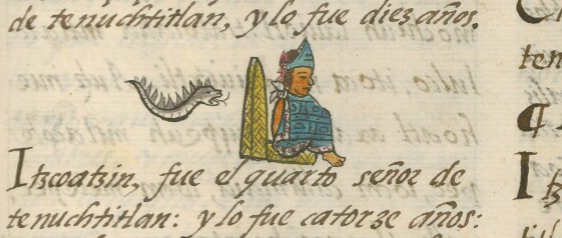 de tenuchtitlan, y lo fue diez años.
Itzcoatzin, fue el quarto señor de
tenuchtitlan: y lo fue catorze años:
ten
¶